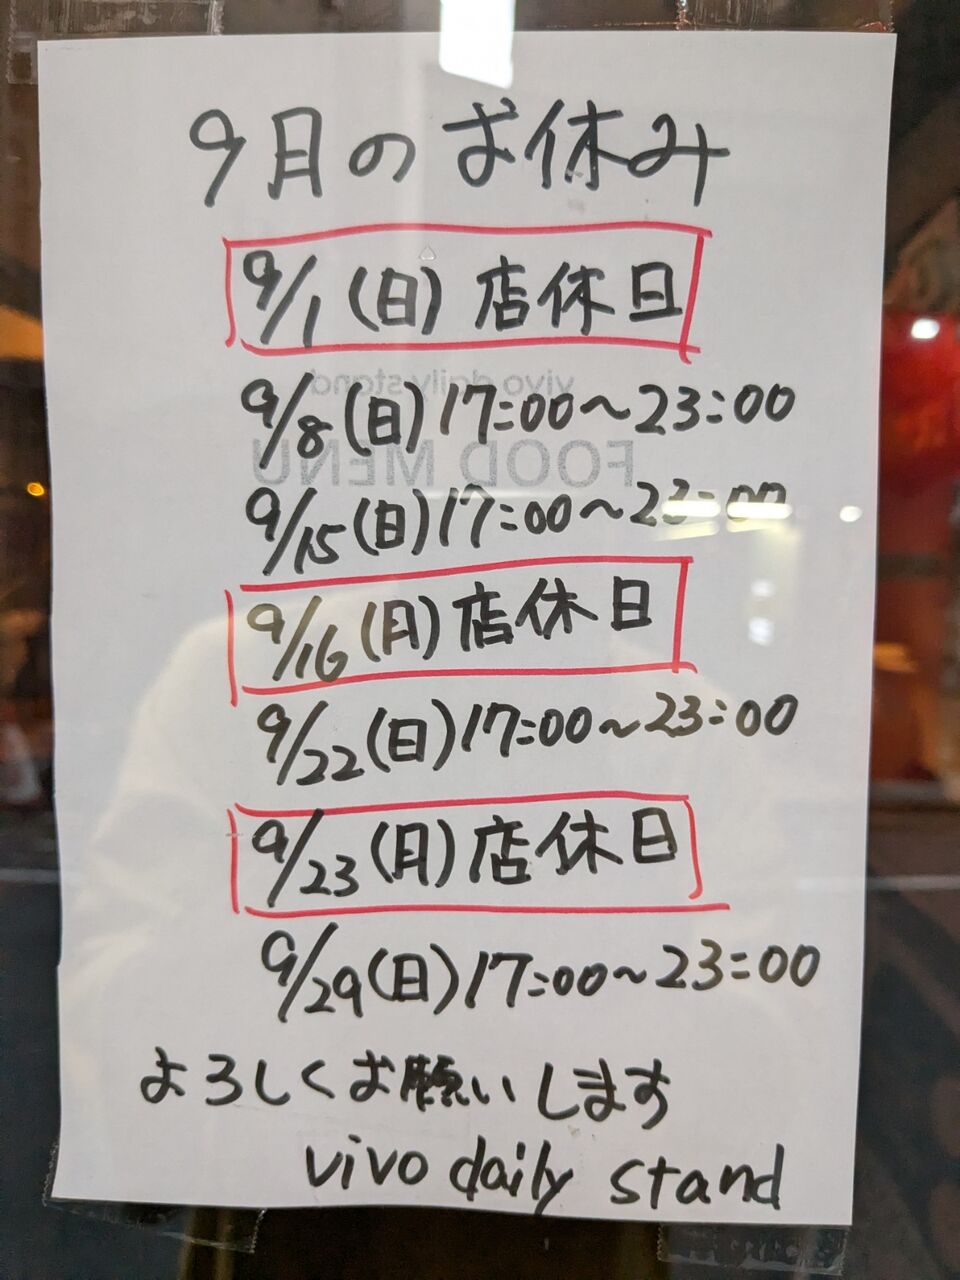 9月のお休み
9/1(日)店休日
9/8(日)17:00〜23:00
vivo daily stand
FOOD MENU
9/15(日)17:00〜23:00
9/16(月)店休日
9/22(日)17:00〜23:00
9/23(月)店休日
9/29(日)17:00〜23:00
よろしくお願いします
vivo daily stand